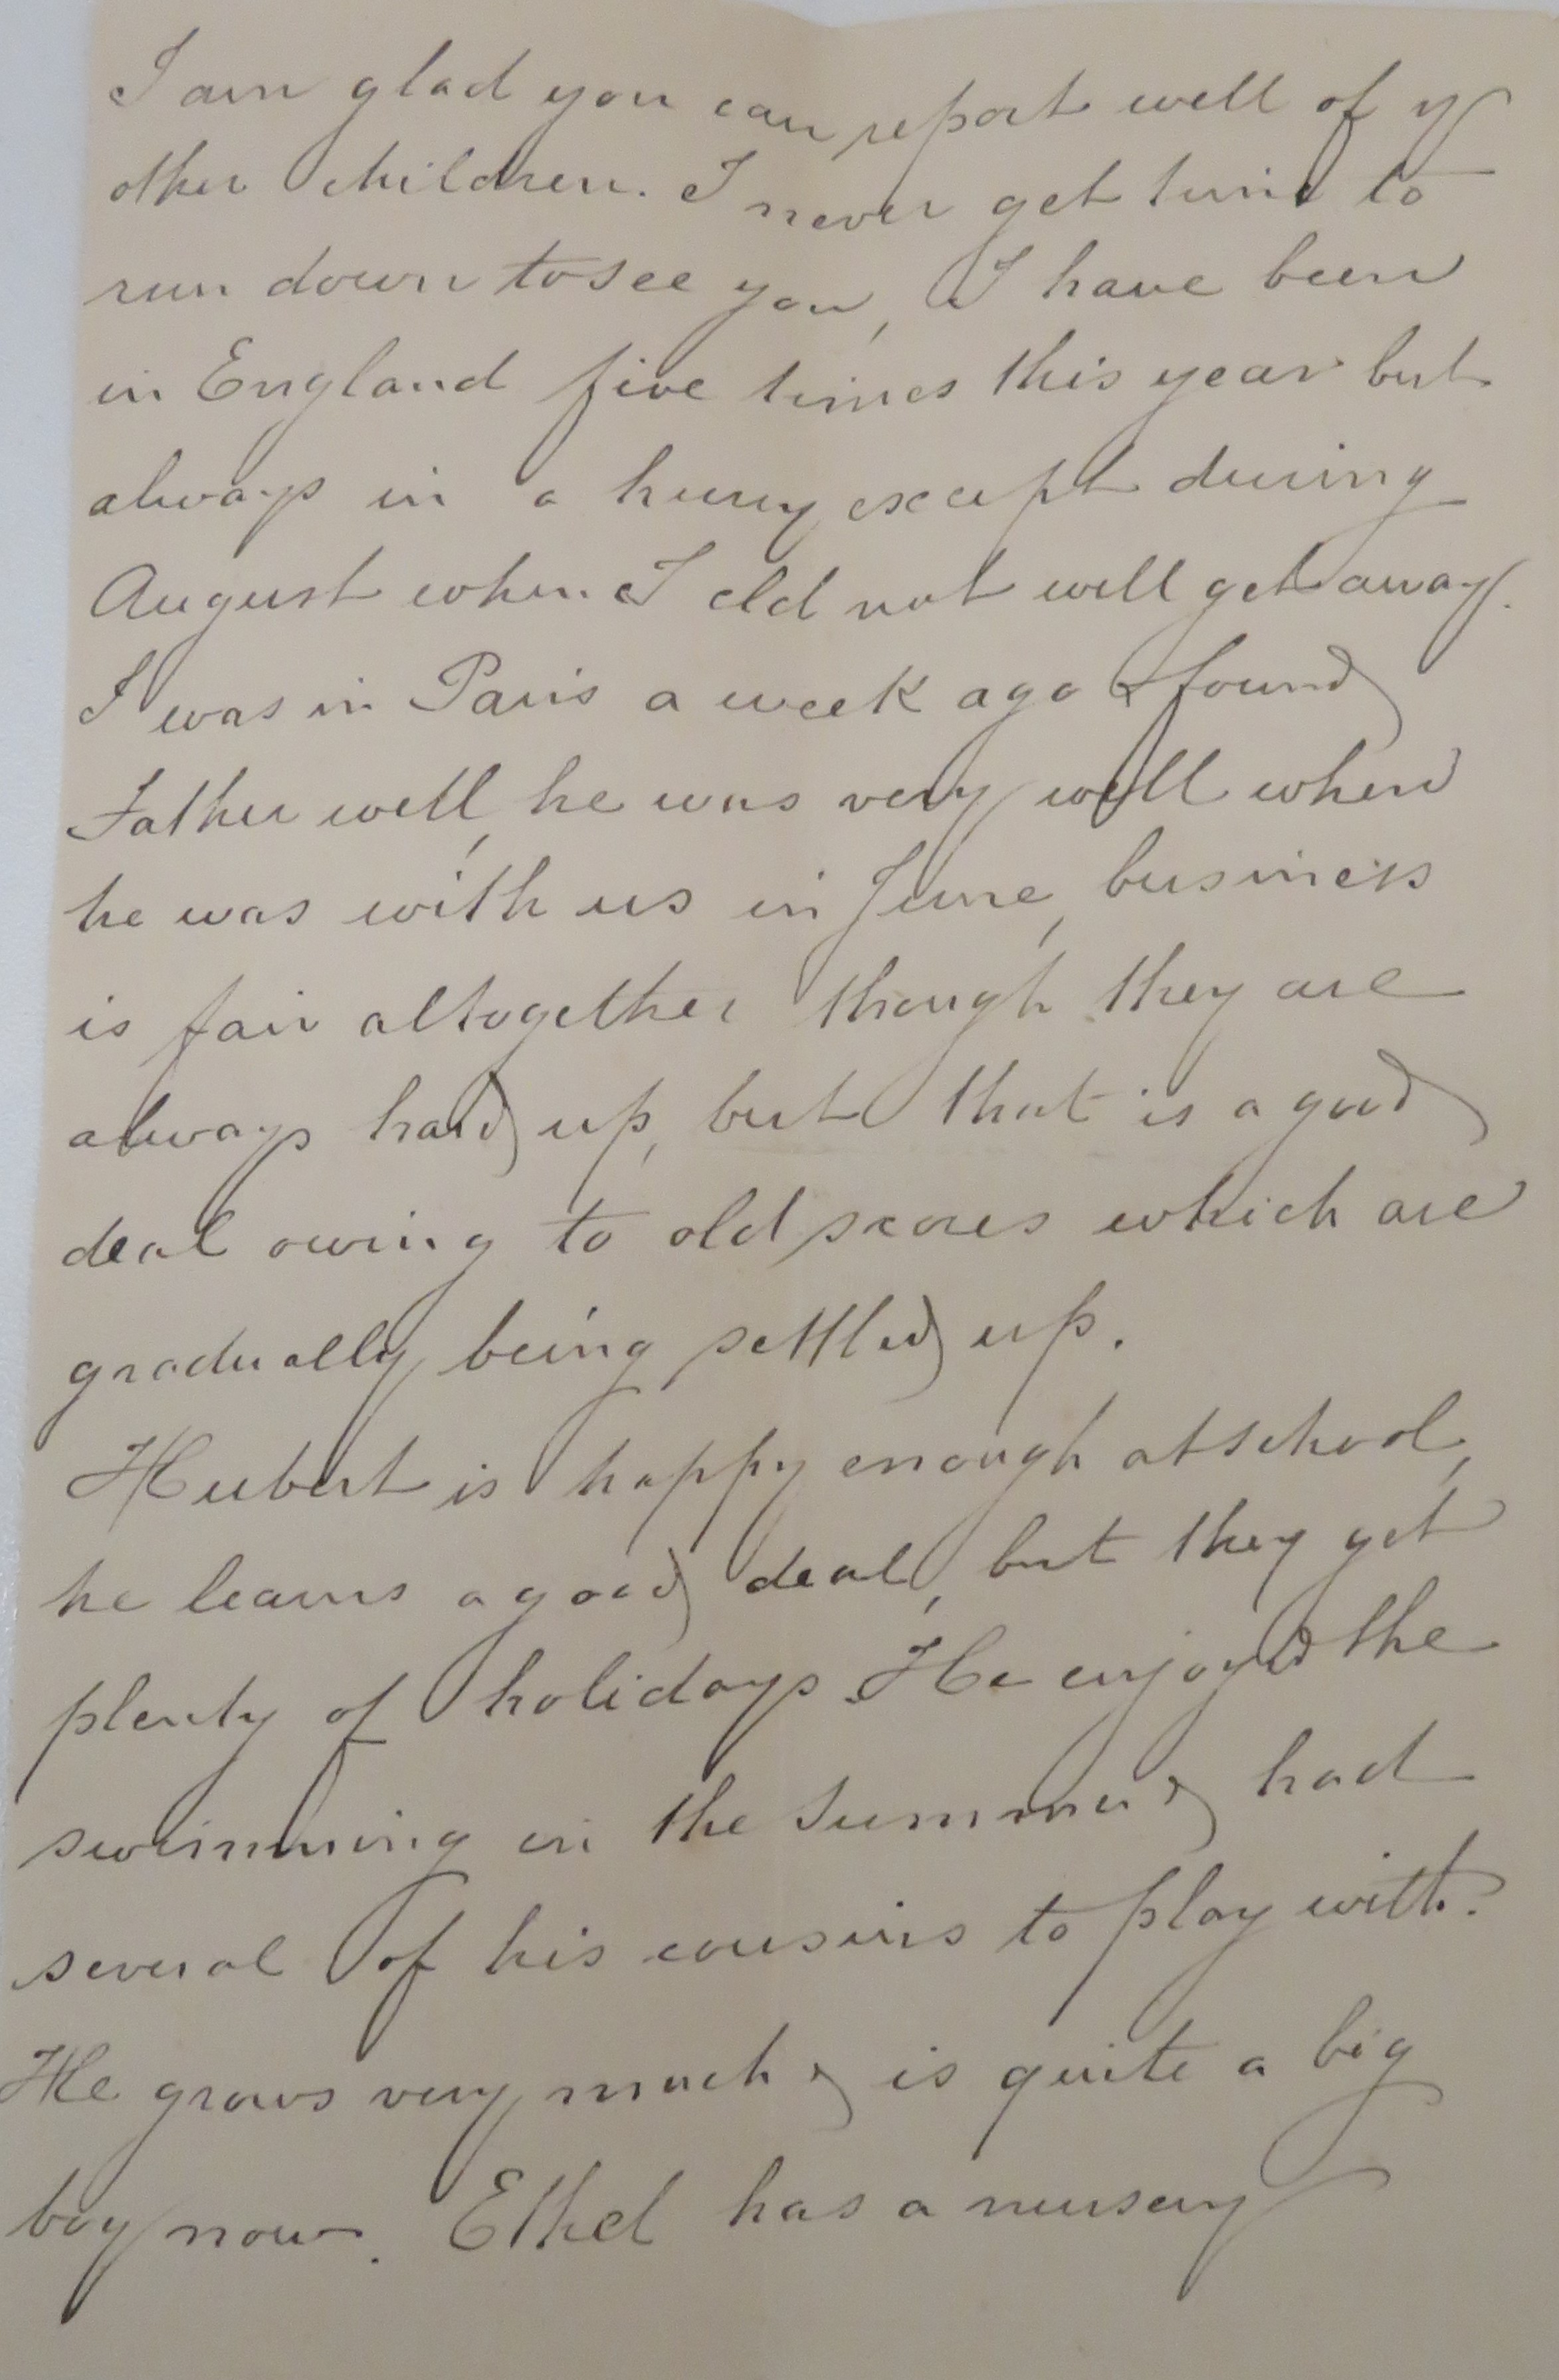 I am glad you can report well of yr
other children. I never get time to
run down to see you, I have been
in England five times this year but
always in a hurry except during
August when I cld not well get away.
I was in Paris a week ago & found
Father well, he was very well when
he was with us in June, business
is fair altogether though they are
always hard up, but that is a good
deal owing to old scores which are
gradually being settled up.
Hubert is happy enough at school,
he learns a good deal, but they get
plenty of holidays. He enjoyed the
swimming in the summer & had
several of his cousins to play with.
He grows very much & is quite a big
boy now. Ethel has a nursery